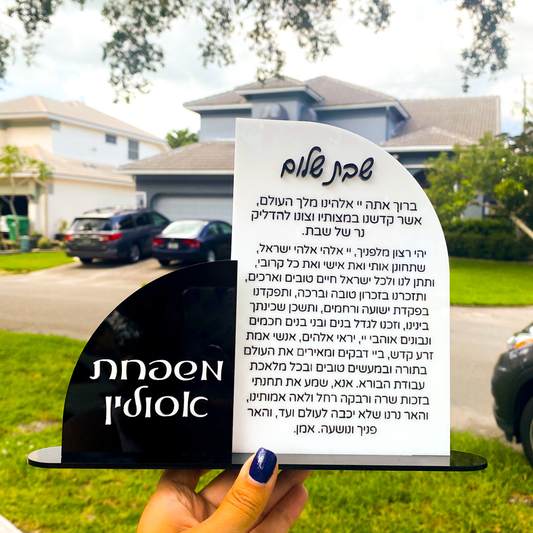 שבת שלום
ברוך אתה יי אלהינו מלך העולם,
אשר קדשנו במצותיו וצונו להדליק
נר של שבת.
יהי רצון מלפניך, יי אלהי אלהי ישראל,
שתחונן אותי ואת אישי ואת כל קרובי,
ותתן לנו ולכל ישראל חיים טובים וארכים,
ותזכרנו בזכרון טובה וברכה, ותפקדנו
בפקדת ישועה ורחמים, ותשכן שכינתך
בינינו, וזכנו לגדל בנים ובני בנים חכמים
ונבונים אוהבי יי, יראי אלהים, אנשי אמת
זרע קדש, ביי דבקים ומאירים את העולם
בתורה ובמעשים טובים ובכל מלאכת
עבודת הבורא. אנא, שמע את תחנתי
בזכות שרה ורבקה רחל ולאה אמותינו,
והאר נרנו שלא יכבה לעולם ועד, והאר
פניך ונושעה. אמן.
משפחת
אסולין